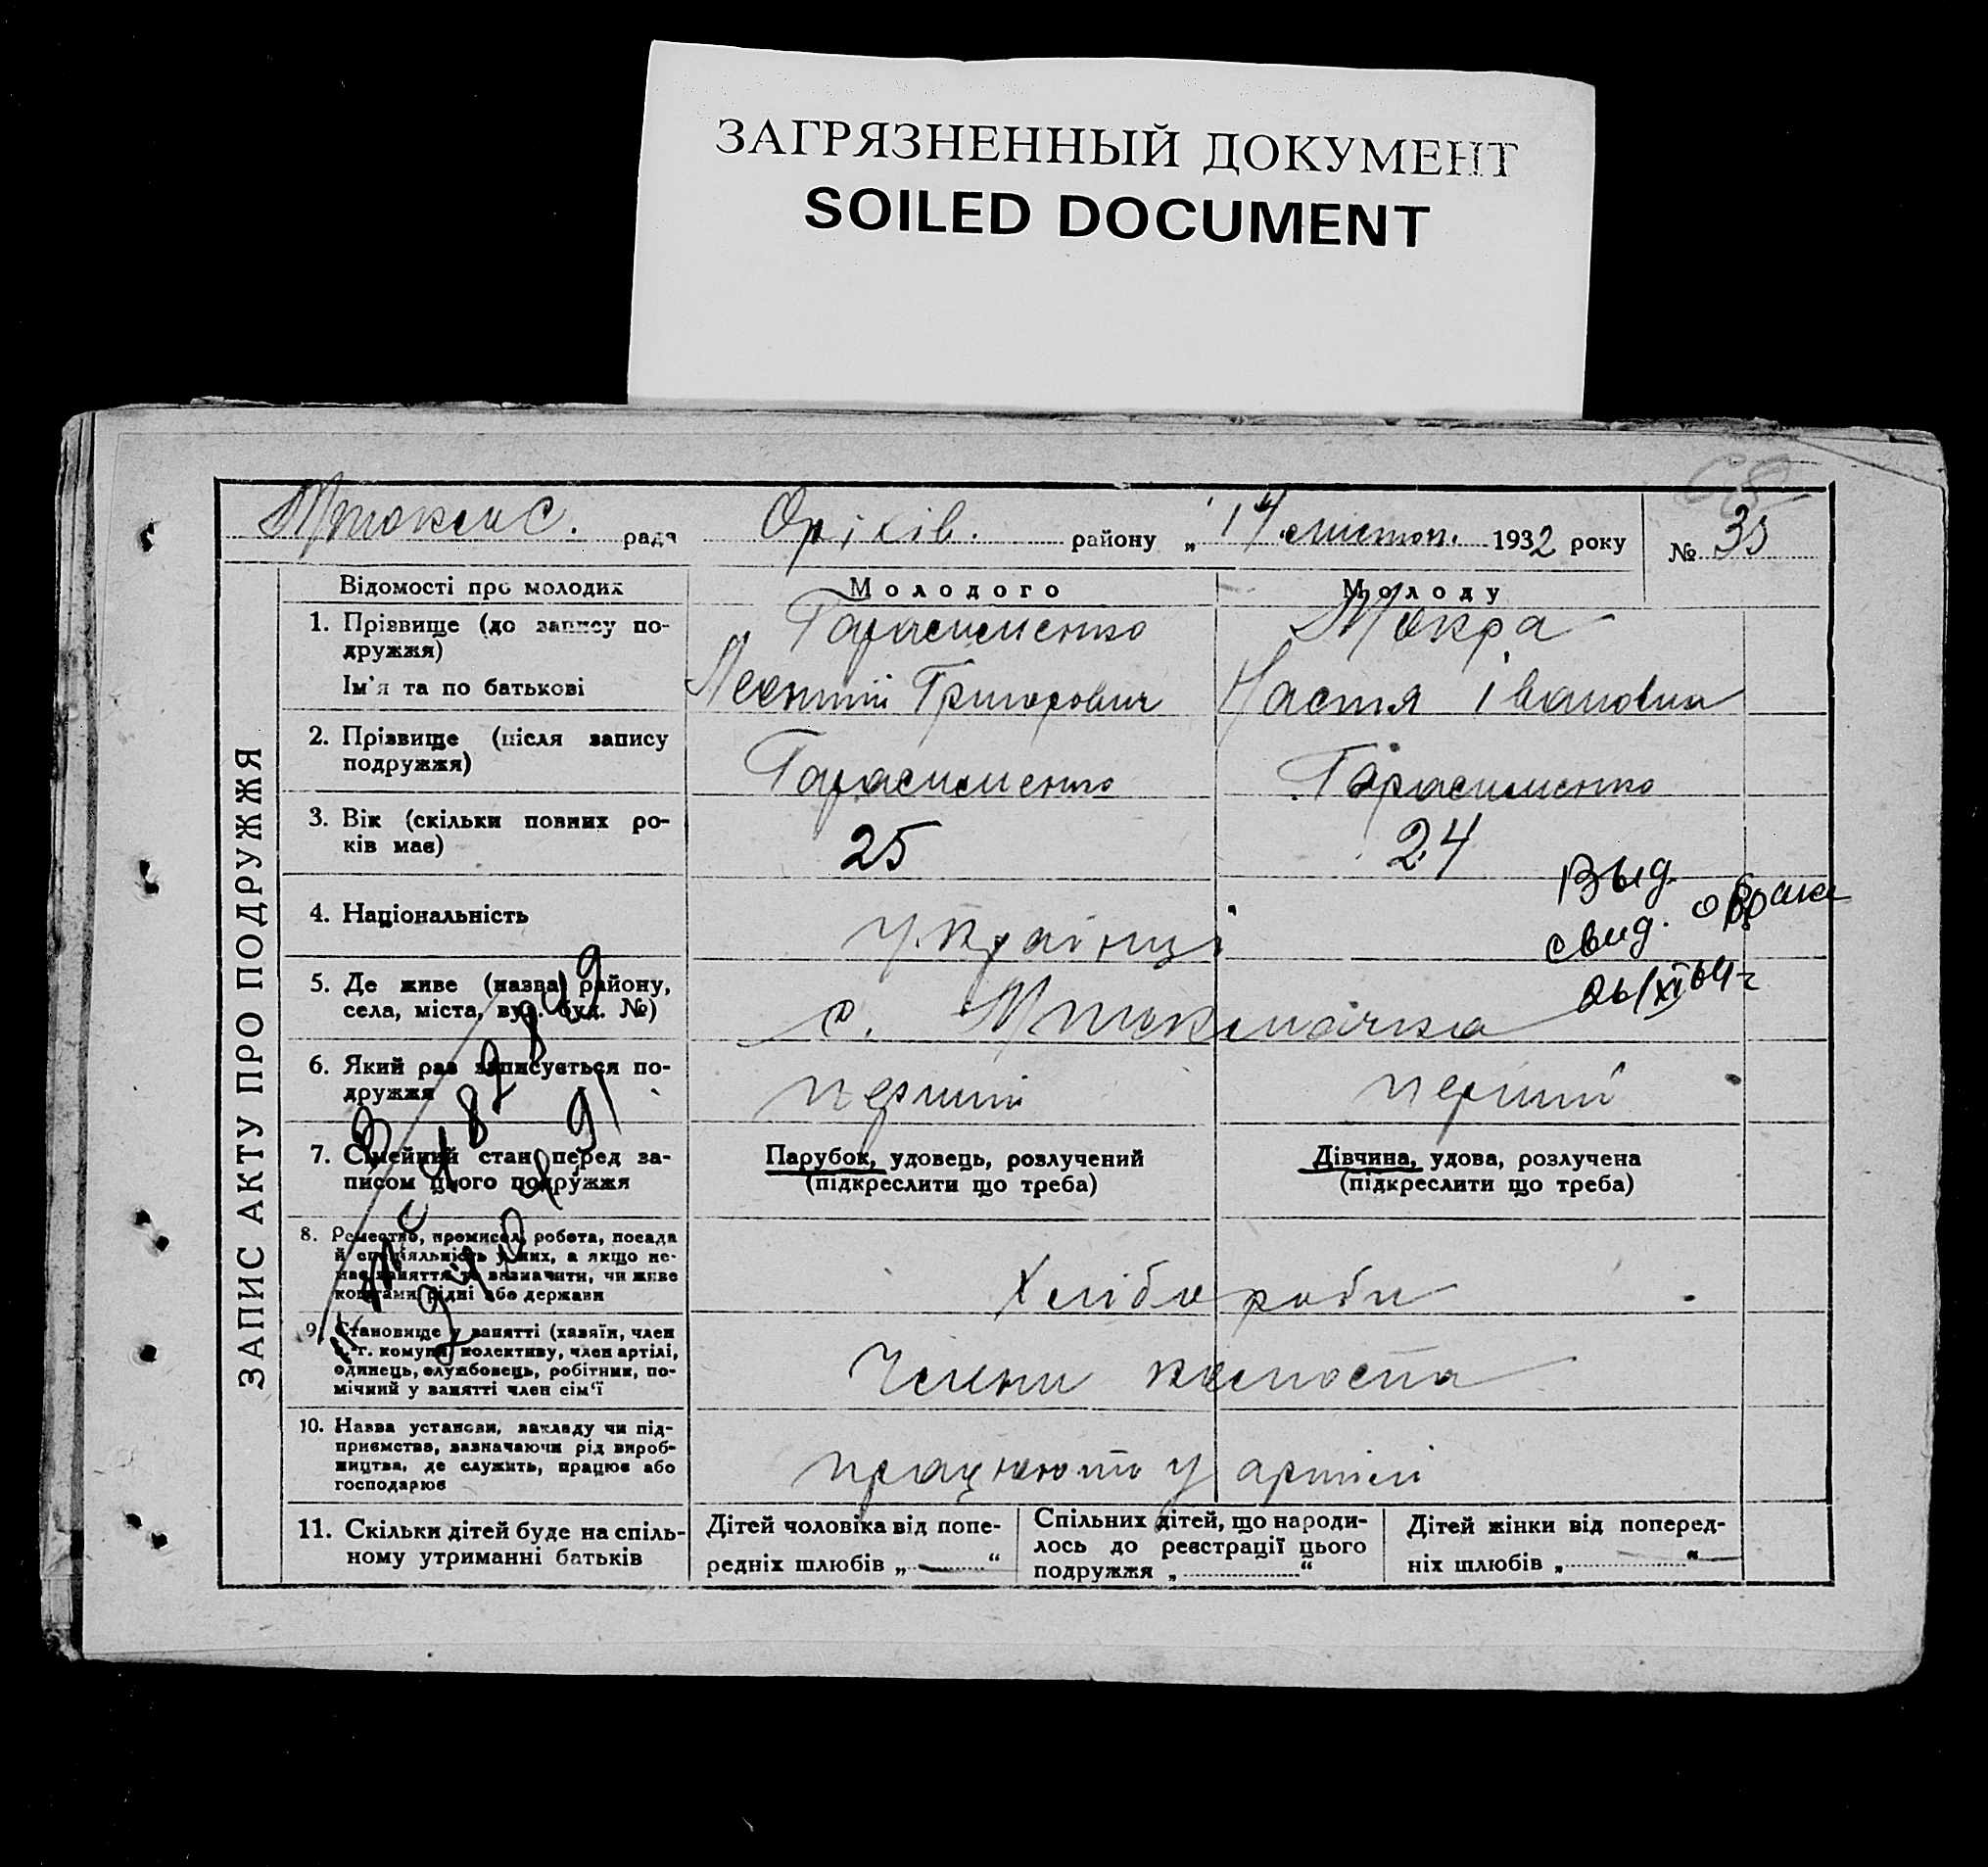 ЗАГРЯЗНЕННЫЙ ДОКУМЕНТ
SOILED DOCUMENT
68
рада Оріхів. району „14 листоп. 1932 року
№ 33
ЗАПИС АКТУ ПРО ПОДРУЖЖЯ
Відомості про молодих
Молодого
Молоду
1. Прізвище (до запису по-
дружжя)
Гарасименко
Мокра
Ім'я та по батькові
Леонтій Григорович
Настя Івановна
2. Прізвище (після запису
подружжя)
Гарасименко
Гарасименко
3. Вік (скільки повних ро-
ків має)
25
24
Выд.
свид. о браке
26/XI 64 г
4. Національність
Українці
5. Де живе (назва району,
села, міста, вул. буд. №)
с. М Токмачка
6. Який раз записується по-
дружжя
перший
перший
7. Сімейний стан перед за-
писом цього подружжя
Парубок, удовець, розлучений
(підкреслити що треба)
Дівчина, удова, розлучена
(підкреслити що треба)
8. Ремество, промисел, робота, посада
й спеціяльність у них, а якщо не-
має заняття то зазначити, чи живе
коштами рідні або держави
Хлібороби
9. Становище у занятті (хазяїн, член
с.-г. комуни, колективу, член артілі,
одинець, службовець, робітник, по-
мічний у занятті член сім'ї
Члени колгоспа
10. Назва установи, закладу чи під-
приємства, зазначаючи рід вироб-
ництва, де служить, працює або
господарює
працюють у артілі
11. Скільки дітей буде на спіль-
ному утриманні батьків
Дітей чоловіка від попе-
редніх шлюбів „—“
Спільних дітей, що народи-
лось до реєстрації цього
подружжя „ “
Дітей жінки від поперед-
ніх шлюбів „—“